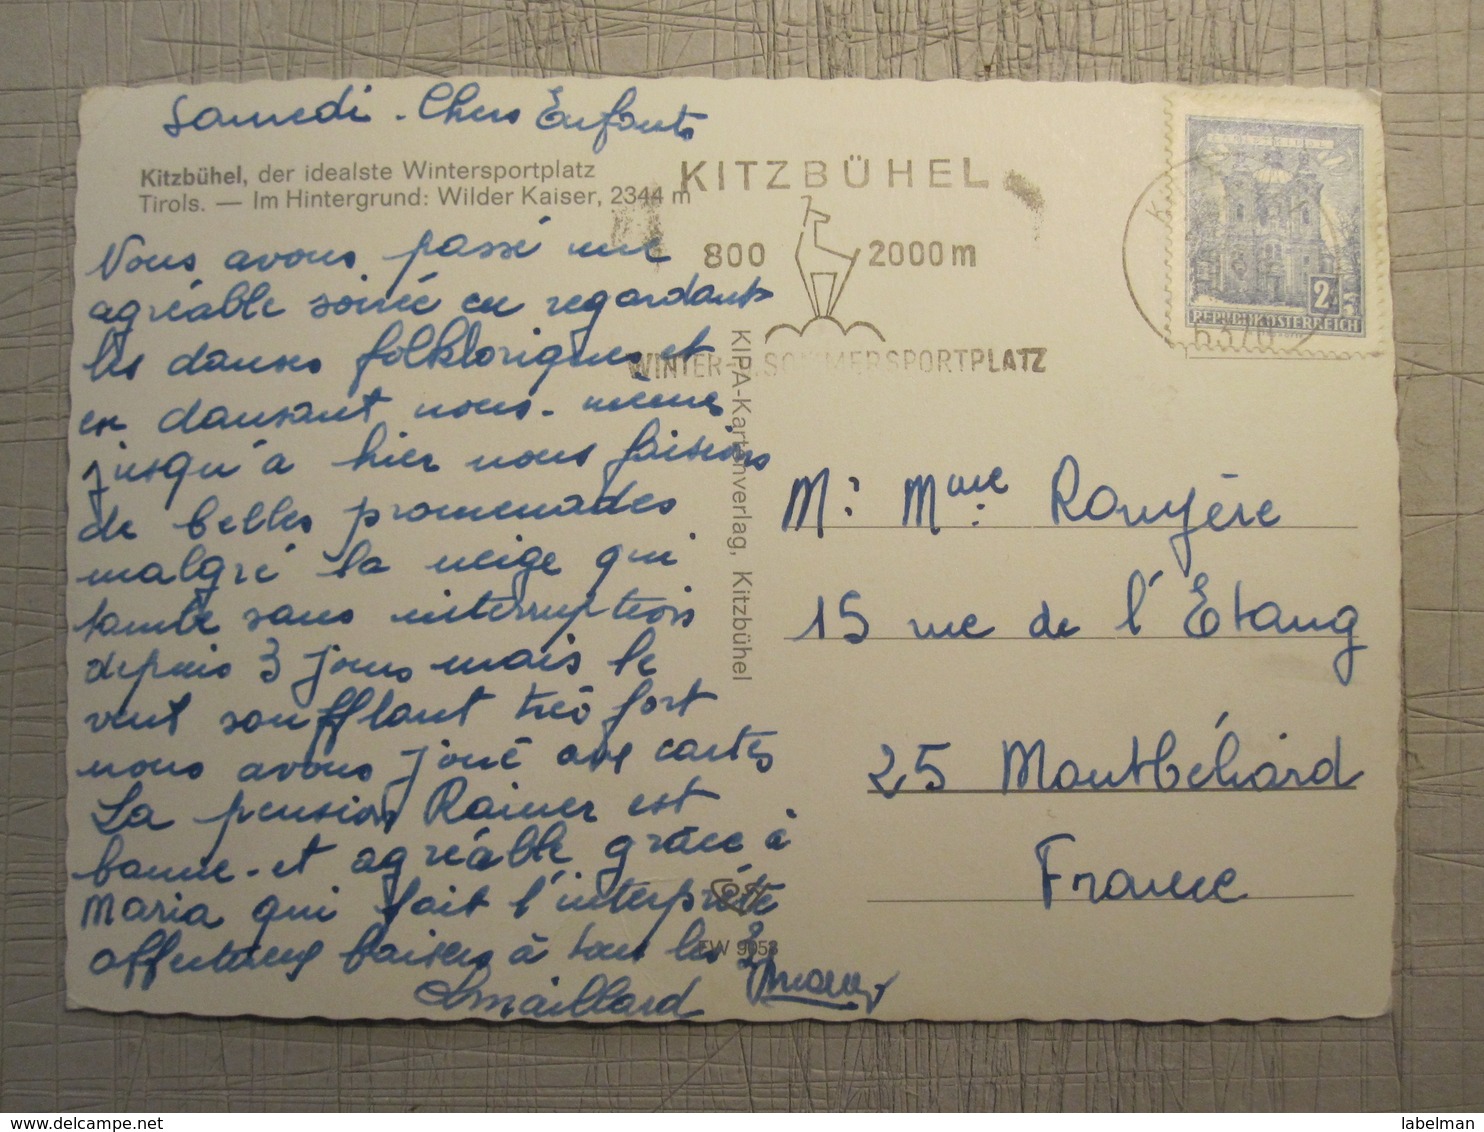 Samedi - Chers Enfants
Kitzbühel, der idealste Wintersportplatz
Tirols. — Im Hintergrund: Wilder Kaiser, 2344 m
Nous avons passé une
agréable soirée en regardant
les danses folkloriques et
en dansant nous-memes
jusqu'à hier nous faisions
de belles promenades
malgré la neige qui
tombe sans interruption
depuis 3 jours mais le
vent soufflant très fort
nous avons joué aux cartes
La pension Rainer est
bonne et agréable grâce à
Maria qui fait l'interprète
affectueux baisers à tous les 2
maillard
KITZBÜHEL
800 2000 m
WINTER-U.SOMMERSPORTPLATZ
KIPA-Kartenverlag, Kitzbühel
FW 9053
2
REPUBLIK ÖSTERREICH
6370
M. Mme Rouyère
15 rue de l'Etang
25 Montbéliard
France
labelman
www.delcampe.net